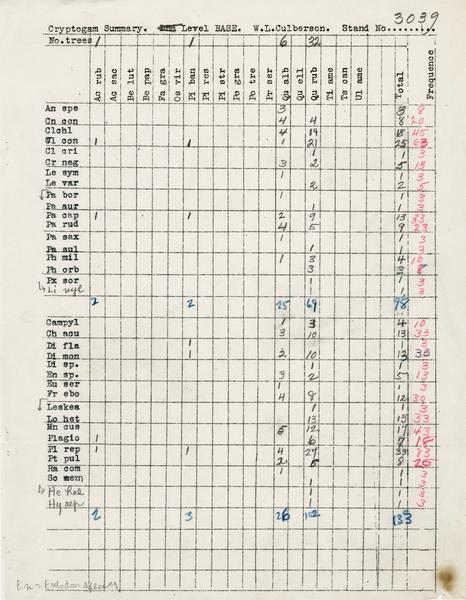 3039
Cryptogam Summary. Level BASE. W.L.Culberson. Stand No.........
No. trees 1 1 6 32
Ac rub Ac sac Be lut Be pap Fa gra Os vir Pi ban Pi res Pi str Po gra Po tre Pr ser Qu alb Qu ell Qu rub Ti ame Ts can Ul ame Total Frequence
An spe 3 3 8
Cn con 4 4 8 20
Clchl 4 14 18 45
Cl con 1 1 1 21 25 63
Cl cri 1 1 3
Cr neg 3 2 5 13
Le sym 1 1 3
Le var 2 2 5
Pa bor 1 1 3
Pa aur 1 1 3
Pa cap 1 1 2 9 13 33
Pa rud 4 5 9 23
Pa sax 1 1 3
Pa sul 1 1 3
Ph mil 1 3 4 10
Ph orb 3 3 8
Px sor 1 1 3
Li nyl 1 1 3
2 2 25 69 98
Campyl 1 3 4 10
Ch acu 3 10 13 33
Di fla 1 1 3
Di mon 1 2 10 13 33
Di sp. 1 1 3
En sp. 3 2 5 13
Eu ser 1 1 3
Fr ebo 4 8 12 30
Leskea 1 1 3
Lo het 13 13 33
Mn cus 5 12 17 43
Plagio 1 6 7 18
Pl rep 1 1 4 27 33 83
Pt pul 2 6 8 20
Ra com 1 1 3
Sc mem 1 1 3
He hal 1 1 3
Hy rep 1 1 3
2 3 26 102 133
En = Entodon species